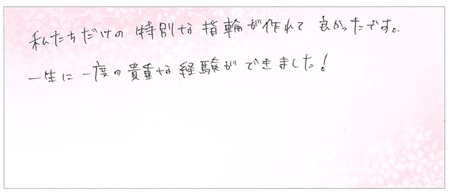 私たちだけの特別な指輪が作れて良かったです。
一生に一度の貴重な経験ができました!